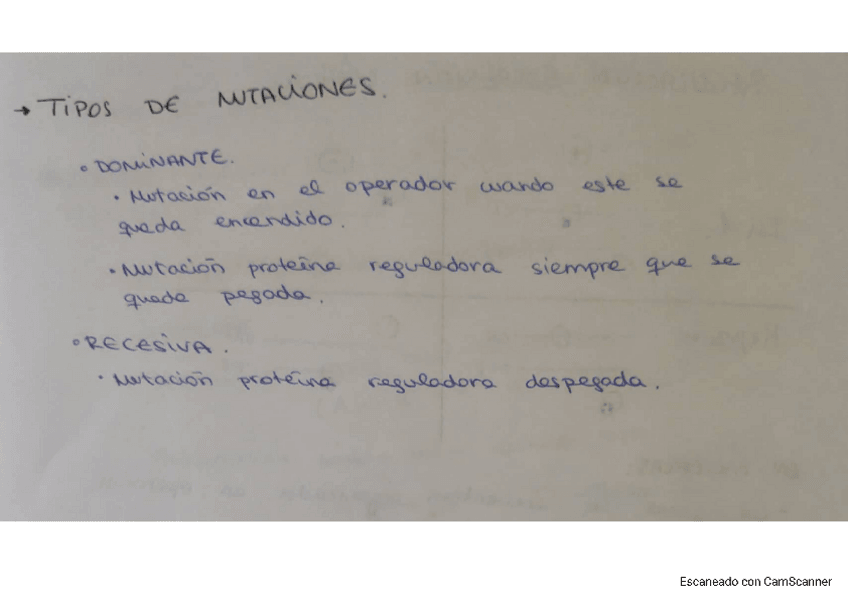 → TIPOS DE MUTACIONES.
◦ DOMINANTE.
· Mutación en el operador cuando este se
queda encendido.
· Mutación proteína reguladora siempre que se
quede pegada.
◦ RECESIVA.
· Mutación proteína reguladora despegada.
Escaneado con CamScanner